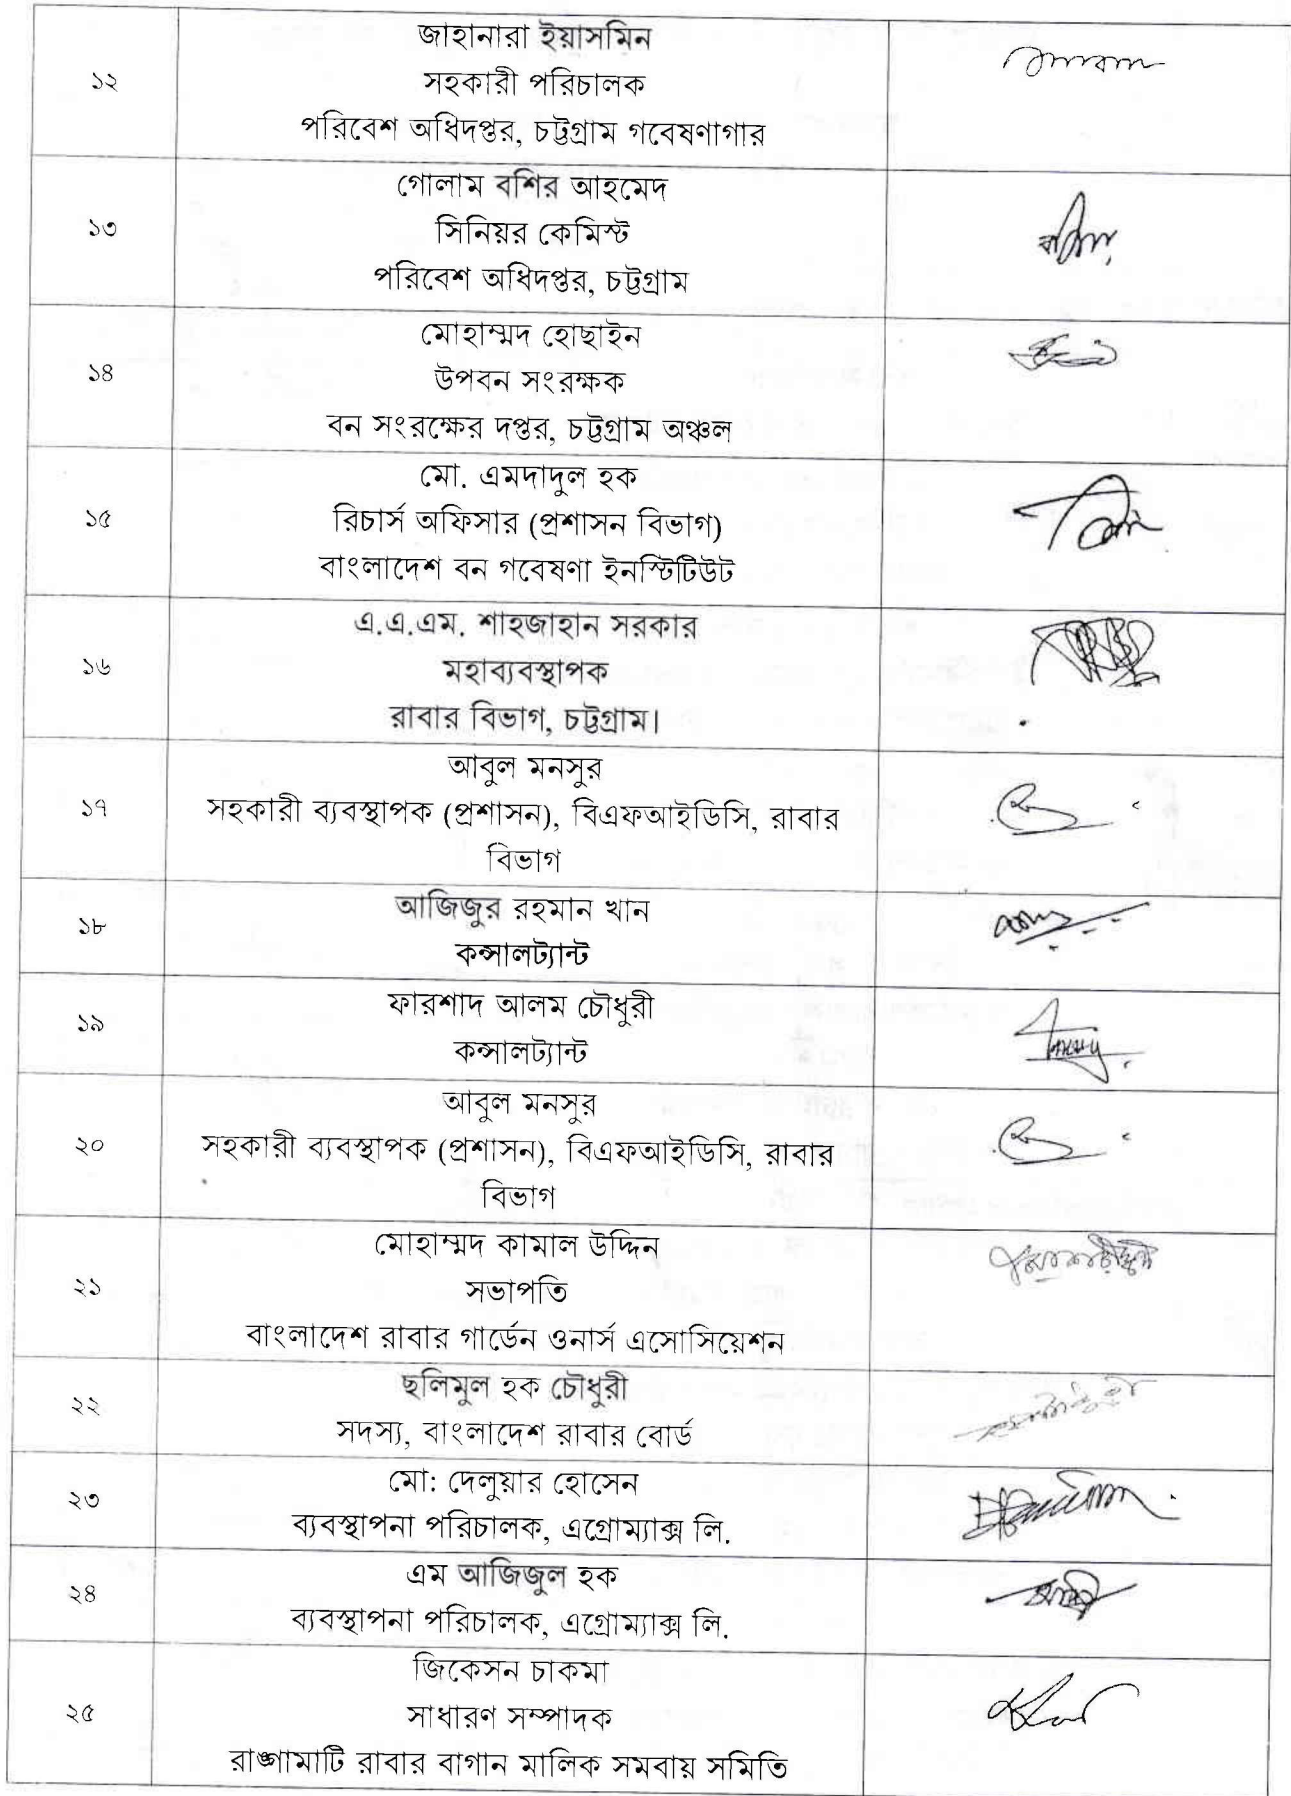 জাহানারা ইয়াসমিন
১২ সহকারী পরিচালক
পরিবেশ অধিদপ্তর, চট্টগ্রাম গবেষণাগার
গোলাম বশির আহমেদ
১৩ সিনিয়র কেমিস্ট
পরিবেশ অধিদপ্তর, চট্টগ্রাম
মোহাম্মদ হোছাইন
১৪ উপবন সংরক্ষক
বন সংরক্ষের দপ্তর, চট্টগ্রাম অঞ্চল
মো. এমদাদুল হক
১৫ রিচার্স অফিসার (প্রশাসন বিভাগ)
বাংলাদেশ বন গবেষণা ইনস্টিটিউট
এ.এ.এম. শাহজাহান সরকার
১৬ মহাব্যবস্থাপক
রাবার বিভাগ, চট্টগ্রাম।
আবুল মনসুর
১৭ সহকারী ব্যবস্থাপক (প্রশাসন), বিএফআইডিসি, রাবার
বিভাগ
আজিজুর রহমান খান
১৮
কন্সালট্যান্ট
ফারশাদ আলম চৌধুরী
১৯
কন্সালট্যান্ট
আবুল মনসুর
২০ সহকারী ব্যবস্থাপক (প্রশাসন), বিএফআইডিসি, রাবার
বিভাগ
মোহাম্মদ কামাল উদ্দিন
২১ সভাপতি
বাংলাদেশ রাবার গার্ডেন ওনার্স এসোসিয়েশন
ছলিমুল হক চৌধুরী
২২
সদস্য, বাংলাদেশ রাবার বোর্ড
মো: দেলুয়ার হোসেন
২৩
ব্যবস্থাপনা পরিচালক, এগ্রোম্যাক্স লি.
এম আজিজুল হক
২৪
ব্যবস্থাপনা পরিচালক, এগ্রোম্যাক্স লি.
জিকেসন চাকমা
২৫ সাধারণ সম্পাদক
রাঙ্গামাটি রাবার বাগান মালিক সমবায় সমিতি